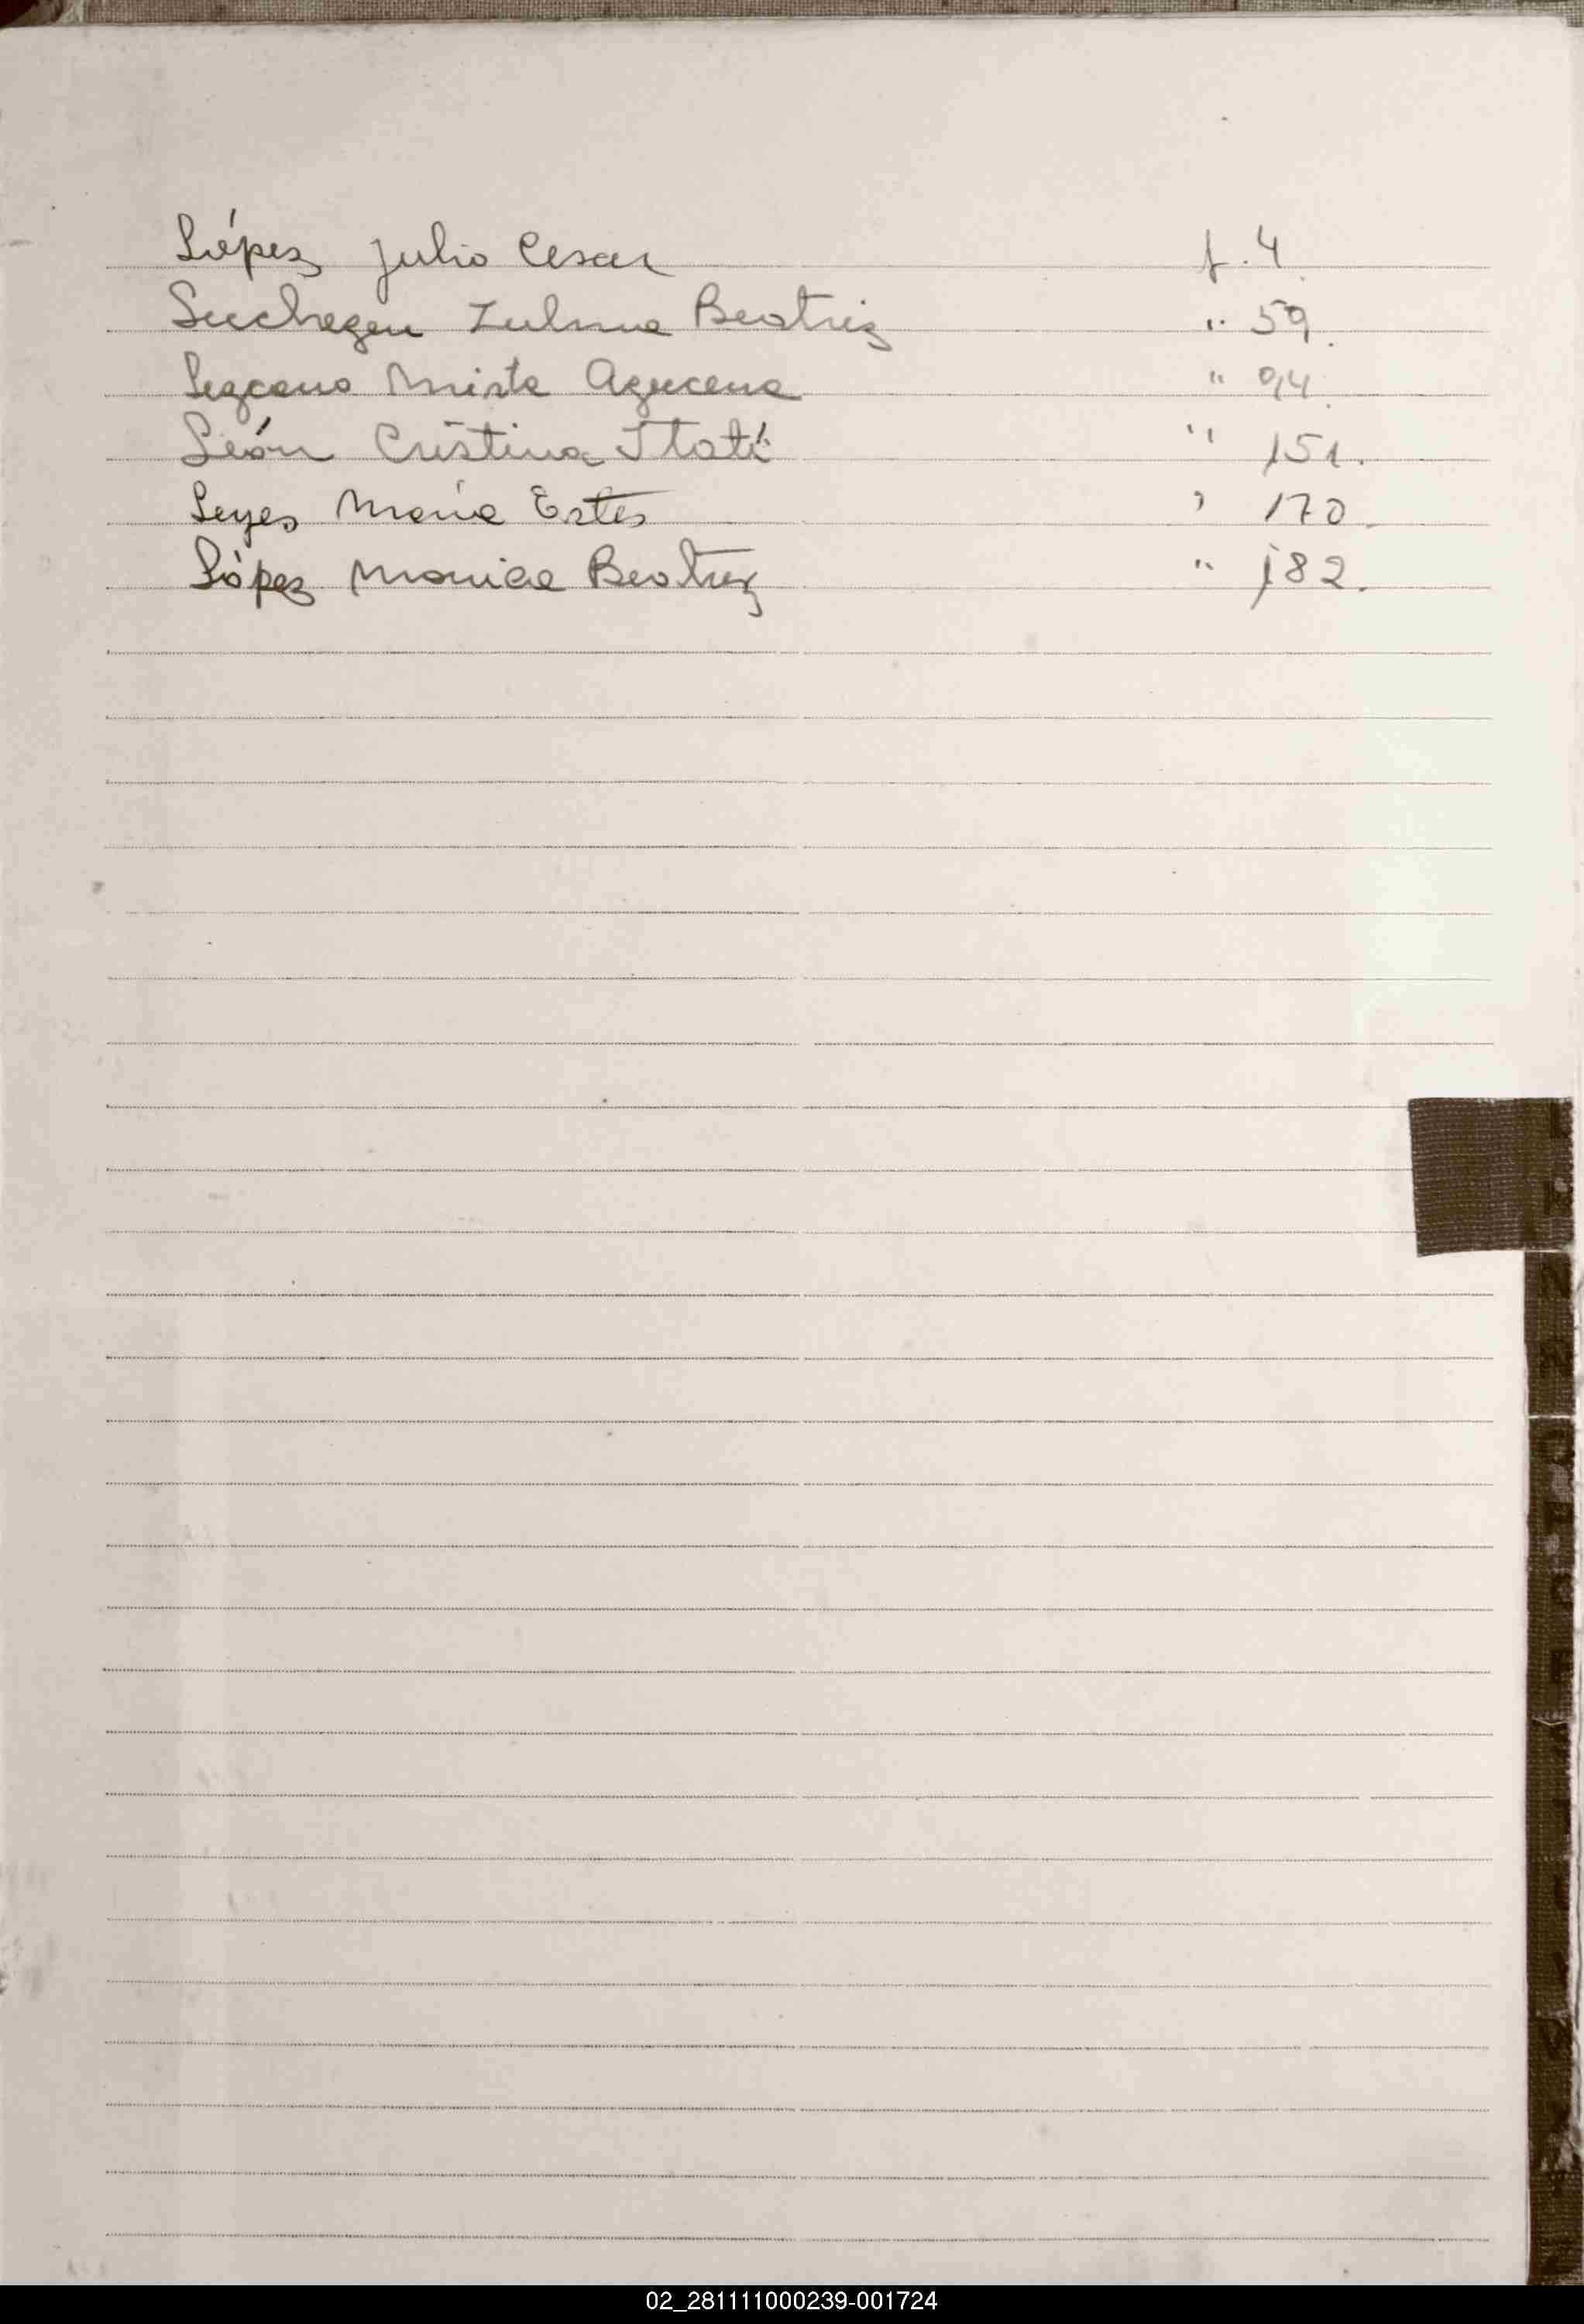 López Julio Cesar f. 4
Luchegeu Zulma Beatriz " 59.
Lezcano Mirta Azucena " 94.
León Cristina Itatí " 151.
Leyes María Ester " 170
López Monica Beatriz " 182.
02_281111000239-001724